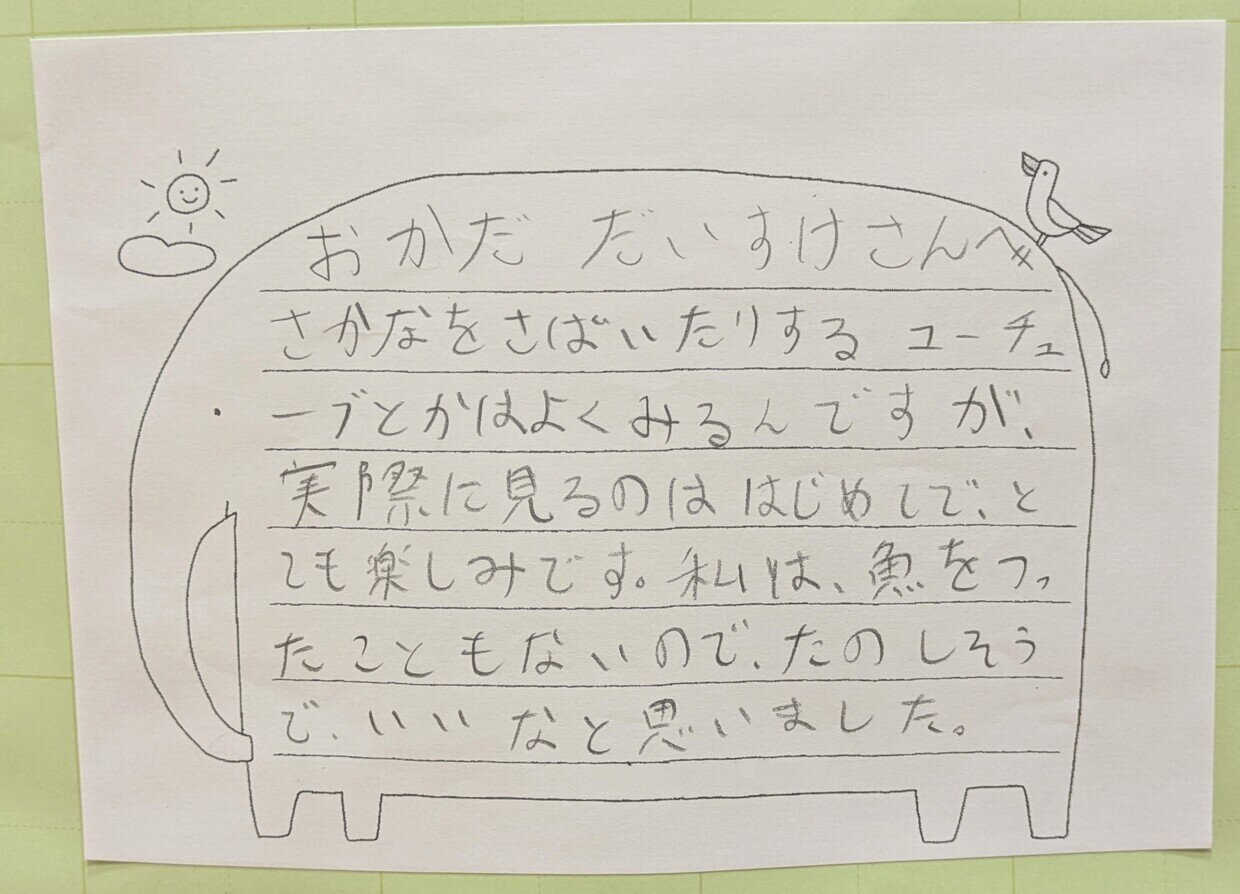 おかだ だいすけさんへ〃
さかなをさばいたりする ユーチュ
ーブとかはよくみるんですが、
実際に見るのははじめてで、と
ても楽しみです。私は、魚をつっ
たこともないので、たのしそう
で、いいなと思いました。